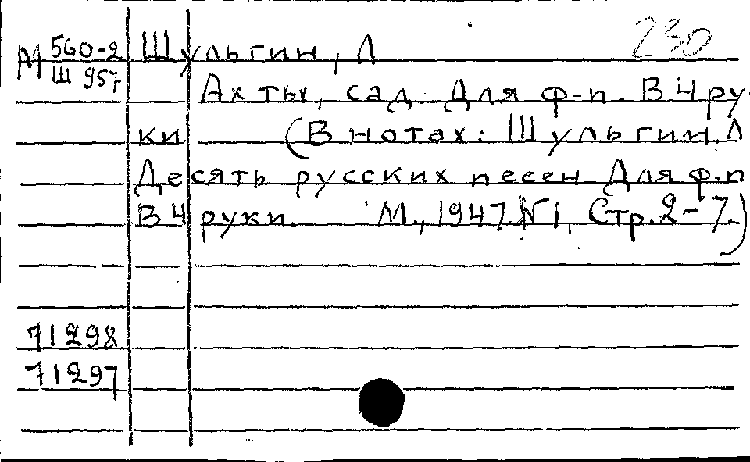 230
А1 560-2 Шульгин, Л
Ш 957
Ах ты, сад. Для ф-п. В 4 ру-
ки (В нотах: Шульгин. Л
Десять русских песен Для ф.п
В 4 руки. М., 1947. №1, Стр. 2-7.)
71298
71297